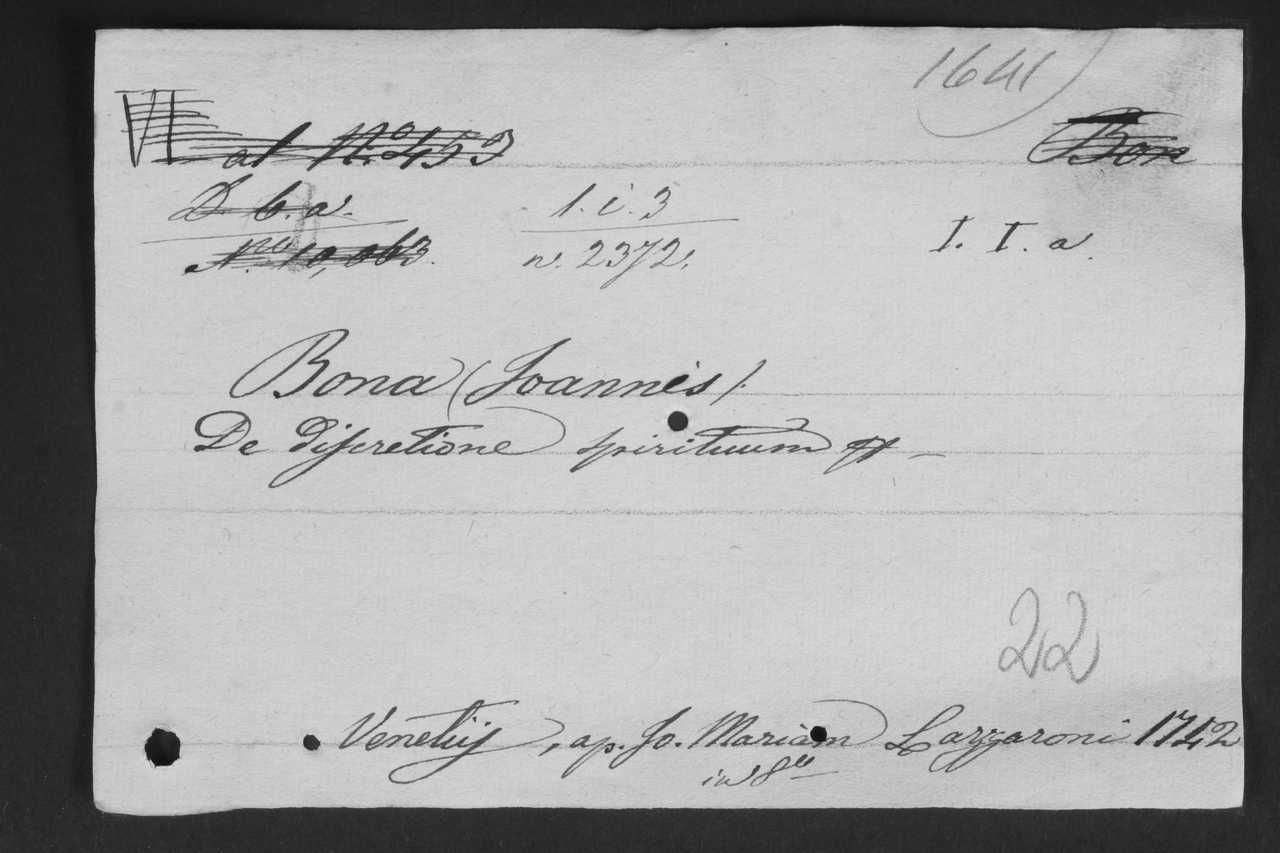 1641
VI al Nº 453 Bon
D. b. a. 1. i. 3
Nº 10,063. n. 2372. I. I. a.
Bona (Joannis).
De discretione spirituum
22
Venetiis, ap. Jo. Mariam Lazzaroni 1742
in 8º